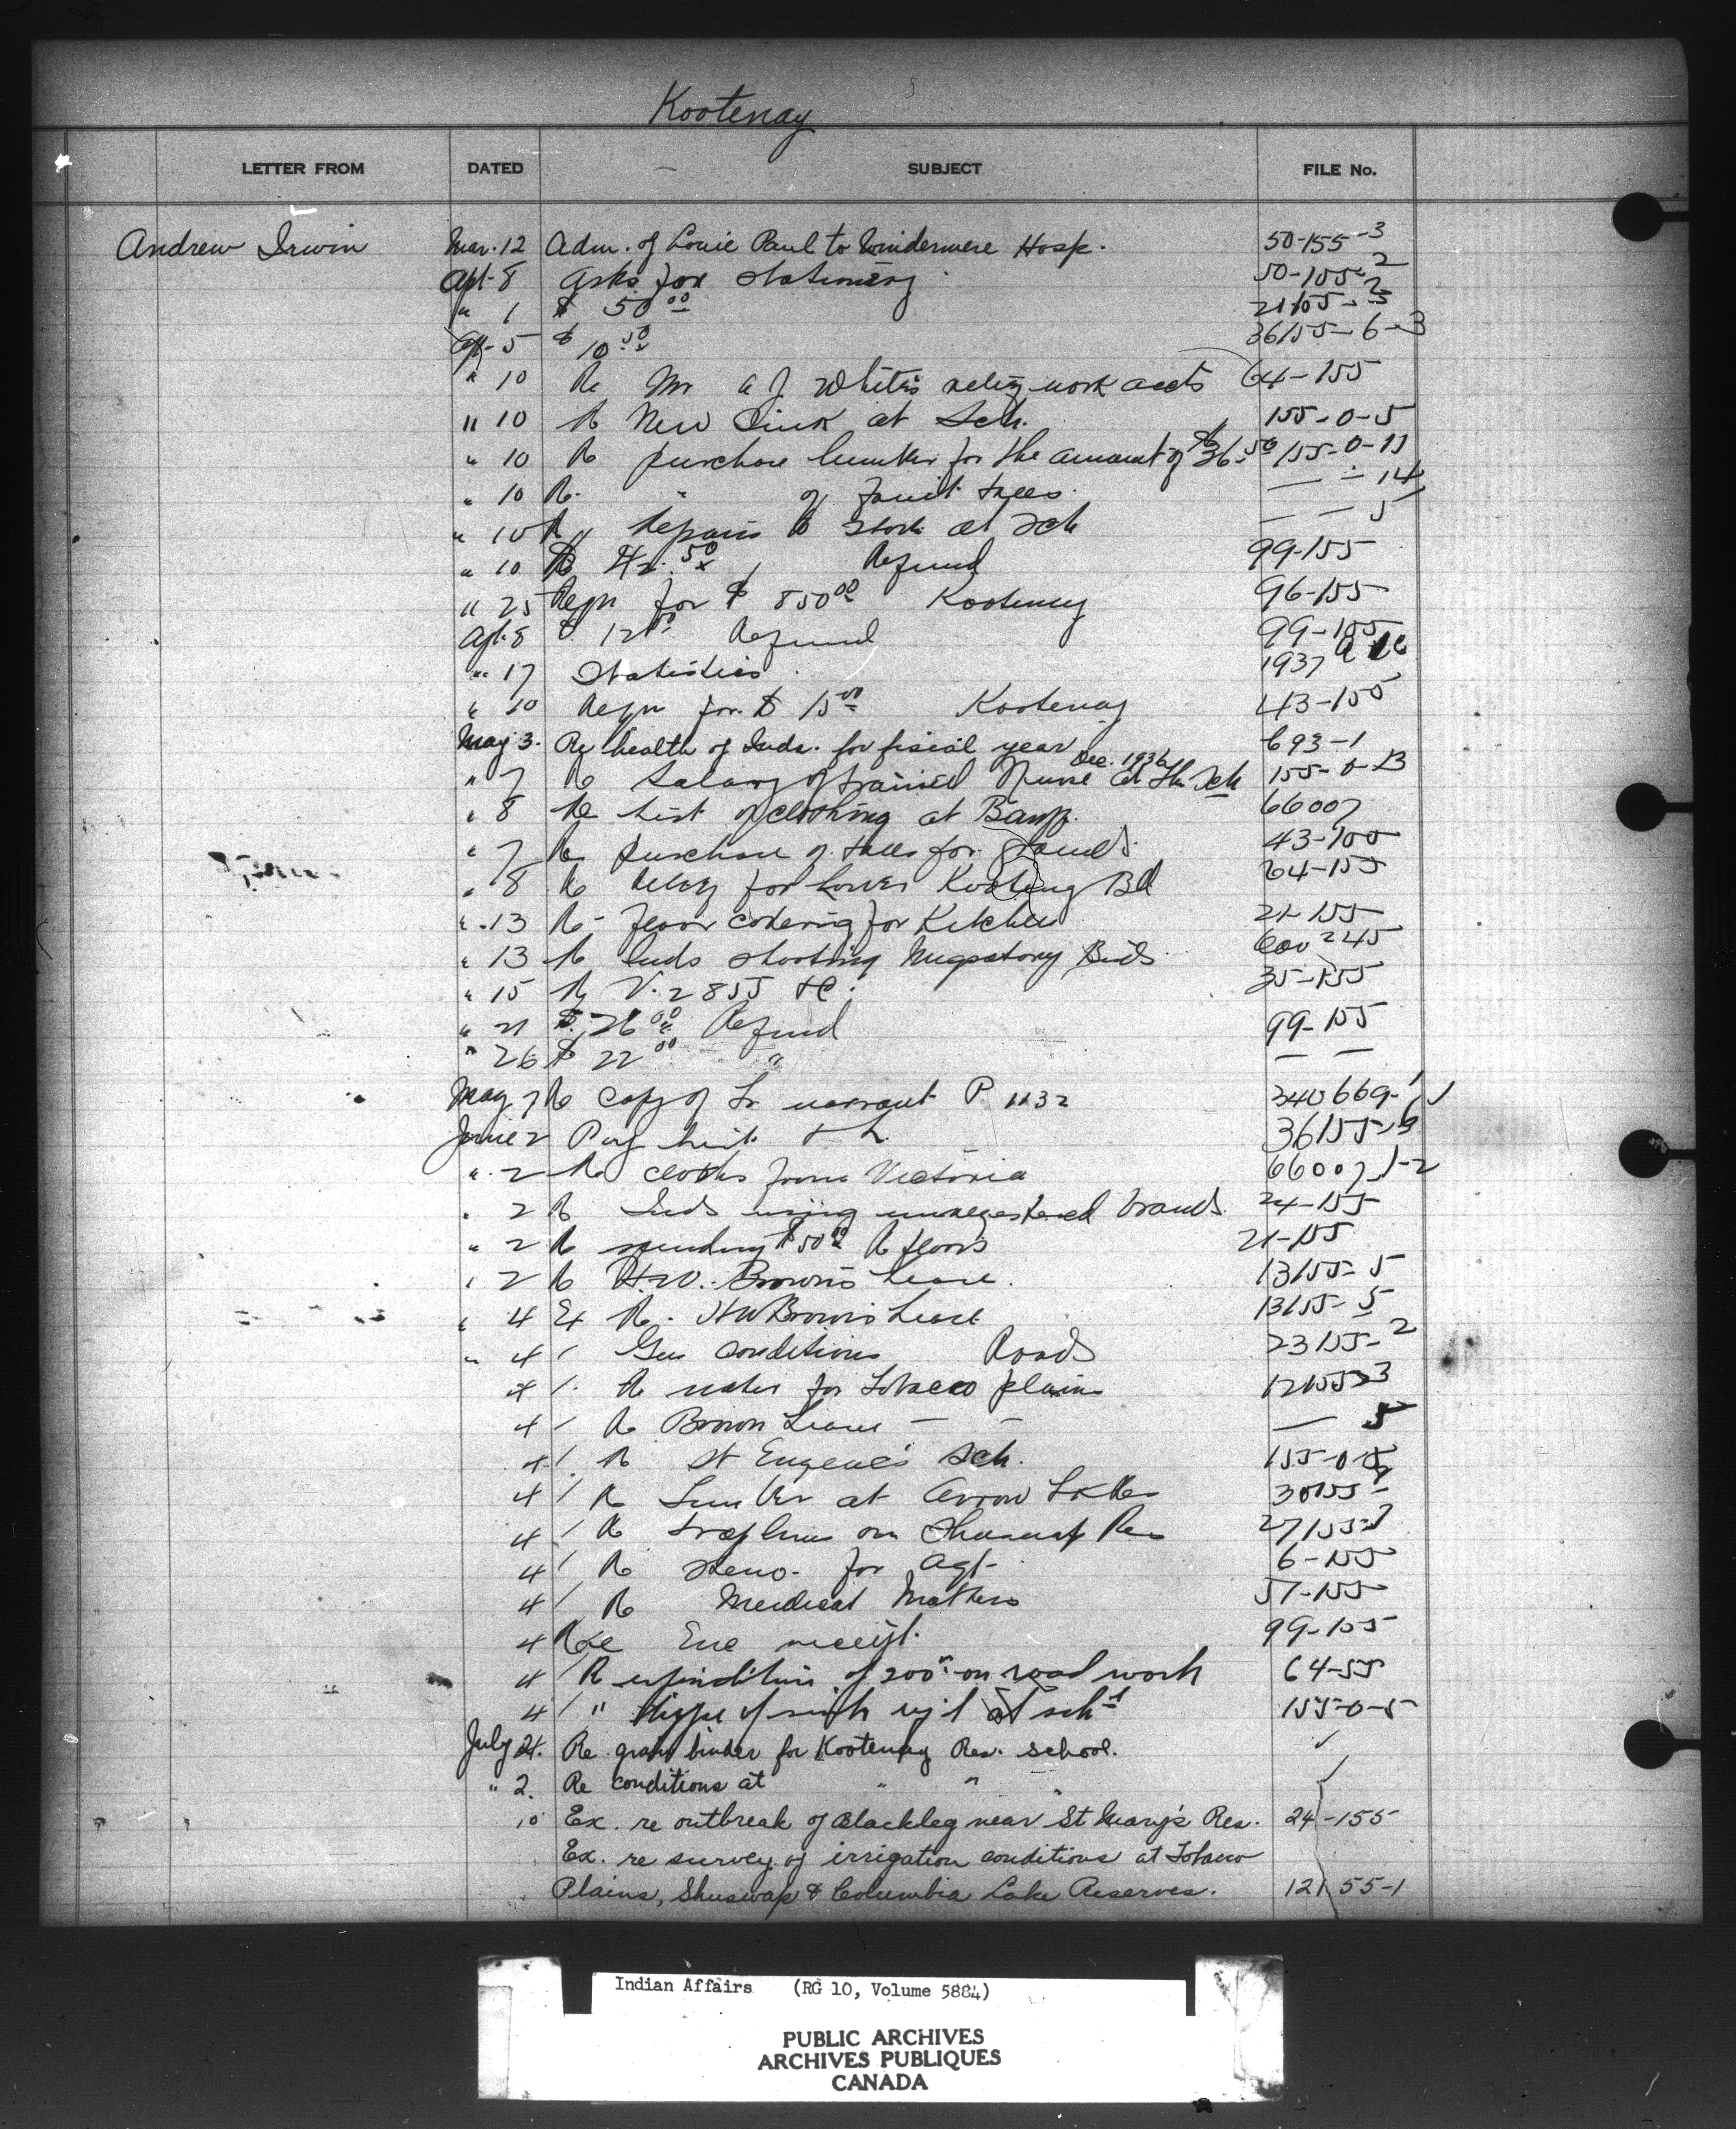 Kootenay
LETTER FROM DATED SUBJECT FILE No.
Andrew Irwin Mar. 12 Adm. of Louie Paul to Windermere Hosp. 50-155-3
Apl. 8 Asks for stationery 50-155-2
" 1 $ 50 00
Apl. 5 $ 10 50 36155-6-3
" 10 Re Mr A J White's relief work accts 64-155
" 10 Re New Sink at Sch. 155-0-5
" 10 Re purchase lumber for the amount of $36.50 155-0-11
" 10 Re " of fruit trees — - 14
" 10 Re Repairs to at Sch — — 5
" 10 Refund 99-155
" 25 Reqn for $ 850 00 Kootenay 96-155
Apl. 8 Refund 99-155
" 17 Statistics 1937
" 10 Reqn for $ 15 00 Kootenay 43-155
May 3. Re health of Inds. for fiscal year 693-1
Dec. 1936
" 7 Re Salary of trained Nurse at the Sch 155-0-13
" 8 Re list of clothing at Banff. 66007
" 7 Re purchase of trees for 43-
" 8 Re relief for Lower Kootenay Bd 64-155
" 13 Re floor covering for Kitchen 21-155
" 13 Re Inds shooting Migratory Birds 600245
" 15 Re V. 2855 35-155
" 21 $ 26 00 Refund 99-155
" 26 $ 22 00 " — —
May 7 Re copy of warrant P 1132 340669-1
June 2 Pay List 36155-
" 2 Re cloths from Victoria 66007 1-2
" 2 Re Inds using unregestered brands 24-155
" 2 Re spending $50 00 Re floors 21-155
" 2 Re H.W. Brown's Lease. 13155-5
" 4 Ex Re. HW Brown's Lease 13155-5
" 4 / Gen Conditions Roads 23155-2
4 / Re water for Tobacco plains 12155-3
4 / Re Brown Lease — — — 5
4 / Re St Eugene's Sch. 155-0-
4 / Re Lumber at Arrow Lakes 30155-
4 / Re traplines on Shuswap Res 27155-
4 / Re Steno. for Agt. 6-155
4 / Re Medical Matters 57-155
4 receipt. 99-155
4 / Re expenditure of 200 00 on road work 64-55
4 / " type of sink at sch 155-0-5
July 24. Re. grain binder for Kootenay Res. School. ✓
" 2. Re conditions at " " " ✓
10 Ex. re outbreak of Blackleg near St Mary's Res. 24-155
Ex. re survey of irrigation conditions at Tobacco
Plains, Shuswap & Columbia Lake Reserves. 12155-1
Indian Affairs (RG 10, Volume 5884)
PUBLIC ARCHIVES
ARCHIVES PUBLIQUES
CANADA